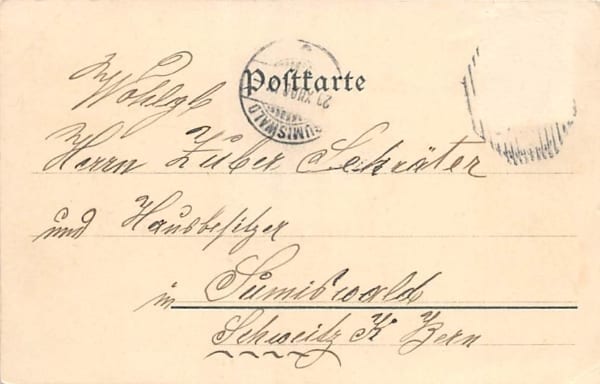 Postkarte
SUMISWALD
Wohlgb
Herrn Zuber Sekräter
und Hausbesitzer
in Sumiswald
Schweitz K Bern